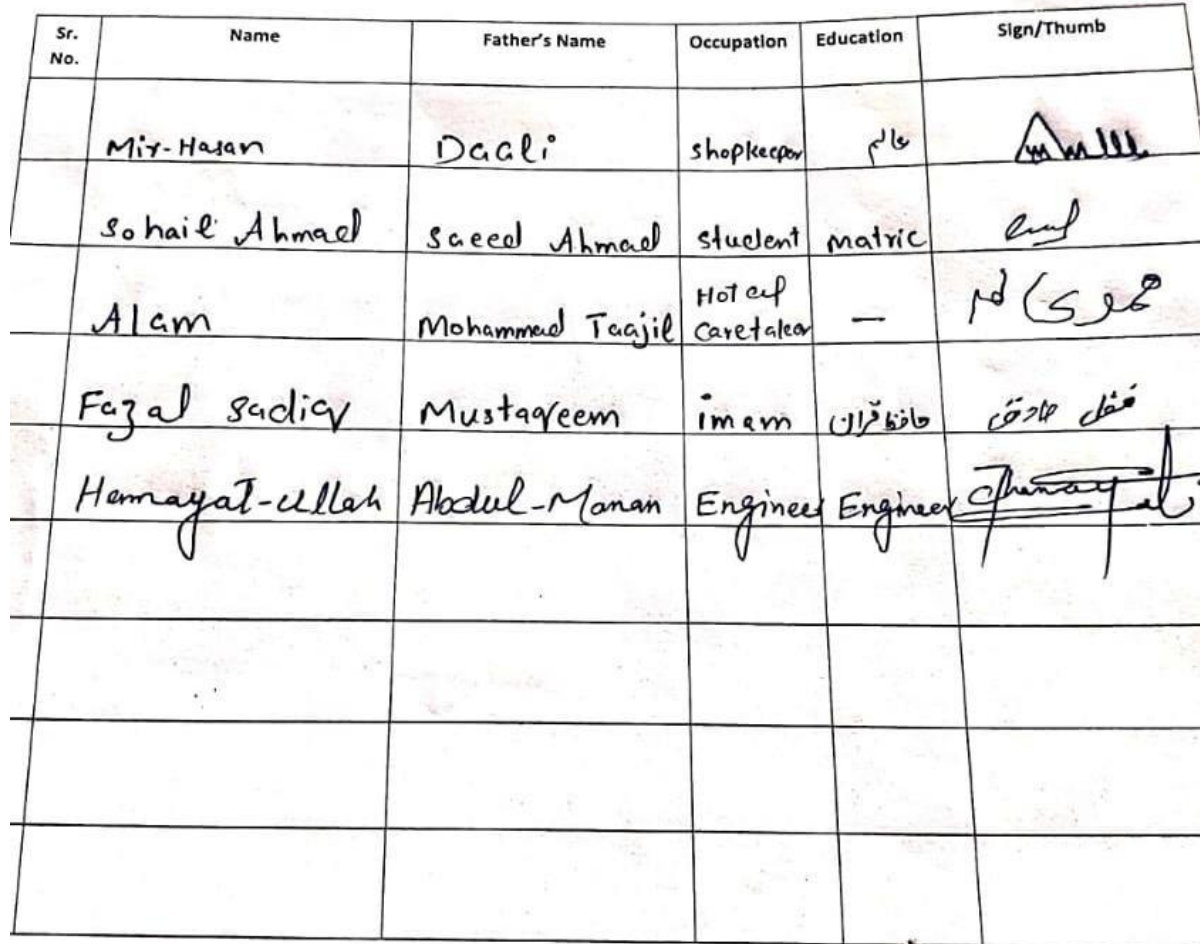 Sr. No. Name Father's Name Occupation Education Sign/Thumb
Mir-Hasan Daali shopkeeper عالم
Sohail Ahmad Saeed Ahmad student matric
Alam Mohammad Taajil Caretaker —
Fazal sadiq Mustaqeem imam حافظ قرآن فضل صادق
Hemayat-ullah Abdul-Manan Engineer Engineer